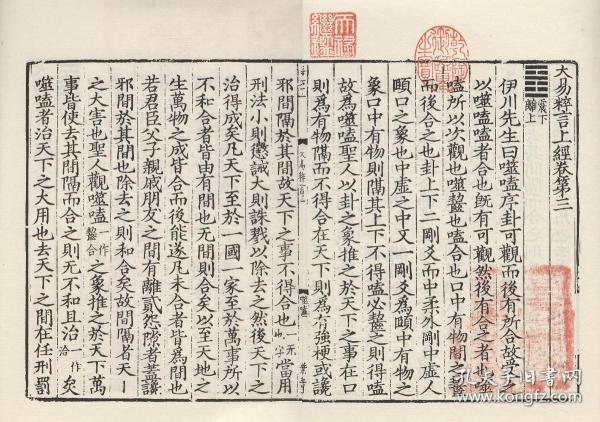 大易粹言上經卷第三
震下
離上
伊川先生曰噬嗑序卦可觀而後有所合故受之
以噬嗑嗑者合也旣有可觀然後有合之者也噬
嗑所以次觀也噬齧也嗑合也口中有物間之齧
而後合之也卦上下二剛爻而中柔外剛中虛人
頤口之象也中虛之中又一剛爻爲頤中有物之
象口中有物則隔其上下不得嗑必齧之則得嗑
故爲噬嗑聖人以卦之象推之於天下之事在口
則爲有物隔而不得合在天下則爲有强梗或讒
邪間隔於其間故天下之事不得合也一无也字當用
刑法小則懲誡大則誅戮以除去之然後天下之
治得成矣凡天下至於一國一家至於萬事所以
不和合者皆由有間也无間則合矣以至天地之
生萬物之成皆合而後能遂凡未合者皆爲間也
若君臣父子親戚朋友之間有離貳怨隙者蓋讒
邪間於其間也除去之則和合矣故間隔者天下
之大害也聖人觀噬嗑一作齧合之象推之於天下萬
事皆使去其間隔而合之則无不和且治一作洽矣
噬嗑者治天下之大用也去天下之間在任刑罰
大易粹言三
噬嗑
孔夫子旧书网
kongfz.com